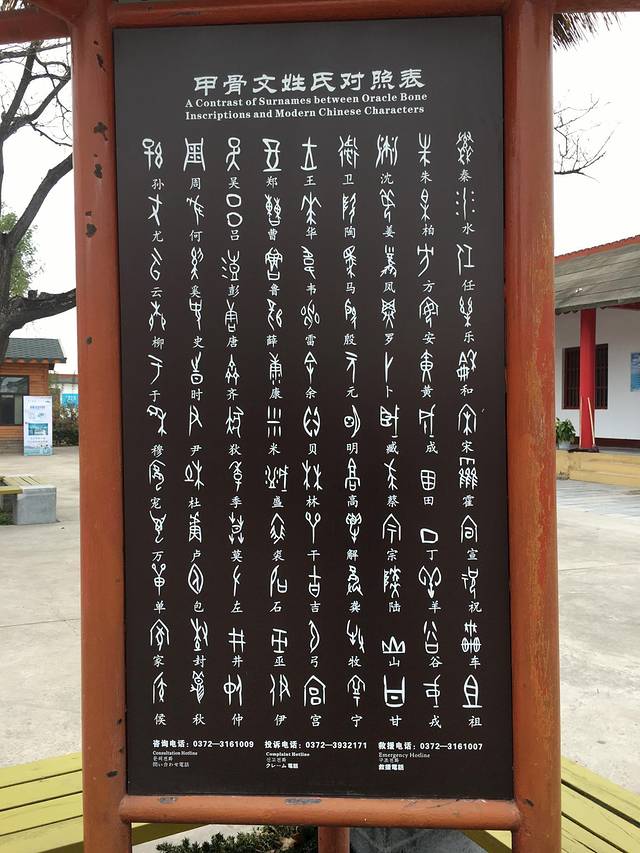 甲骨文姓氏对照表
A Contrast of Surnames between Oracle Bone
Inscriptions and Modern Chinese Characters
孙 周 吴 郑 王 卫 沈 朱 秦
尤 何 吕 曹 华 陶 姜 柏 水
云 奚 彭 鲁 韦 马 凤 方 任
柳 史 唐 薛 雷 殷 罗 安 乐
于 时 齐 康 余 元 卜 黄 和
穆 尹 狄 米 贝 明 臧 成 宋
宠 杜 季 盛 林 高 蔡 田 霍
万 卢 莫 裘 干 解 宗 丁 宣
单 包 左 石 吉 龚 陆 羊 祝
家 封 井 巫 弓 牧 山 谷 车
侯 秋 仲 伊 宫 宁 甘 戎 祖
咨询电话：0372—3161009 投诉电话：0372—3932171 救援电话：0372—3161007
Consultation Hotline Complaint Hotline Emergency Hotline
問い合わせ電話 クレーム電話 救援電話